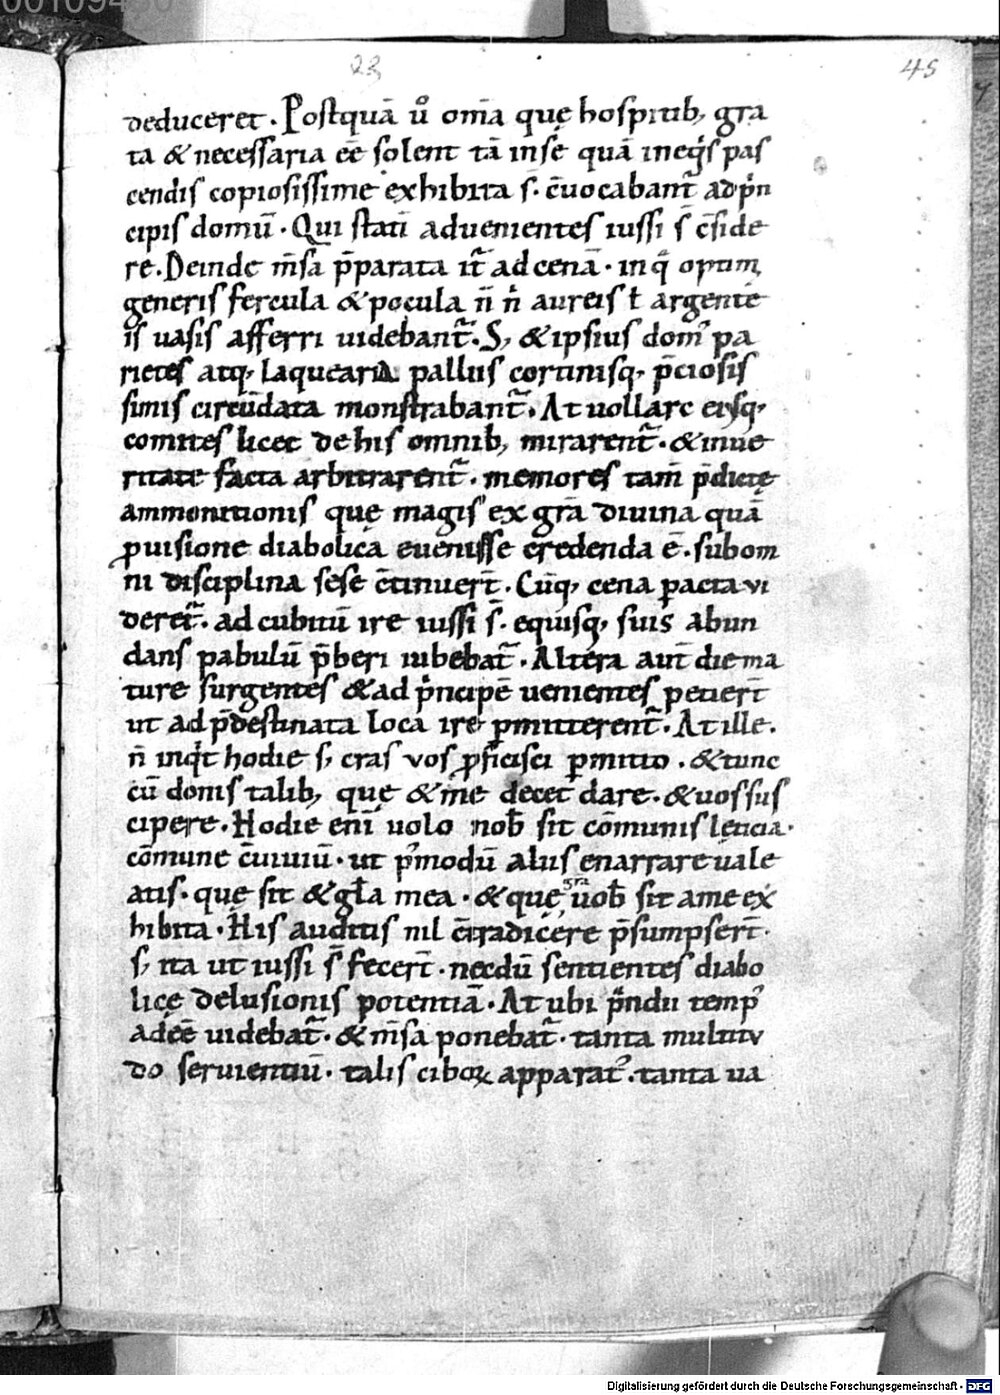 00109430
23
45
deduceret. Postquā ủ om̄a quę hospitib; gra
ta & necessaria eē solent tā in se quā in eqͥs pas
cendis copiosissime exhibita s̄. c̄uocabant᷑ ad pͥn
cipis domū. Qui stati᷑ aduenientes iussi s̄ c̄side
re. Deinde m̄sa p̄parata it᷑ ad cenā. in qͦ optimi
generis fercula & pocula n̄ nͥ aureis ł argente
is uasis afferri uidebant᷑. S; & ipsius dom᷒ pa
rietes atq; laquearia palliis cortinisq; p̄ciosis
simis circūdata monstrabant᷑. At uollarc eiusq;
comites licet de his omnib; mirarent᷑. & in ue
ritate facta arbitrarent᷑. memores tam̄ p̄dictę
ammonitionis quę magis ex gr̄a diuina quā
ꝓuisione diabolica euenisse credenda ē. sub om
ni disciplina sese c̄tinuer̄t. Cūq; cena ꝑacta vi
deret᷑. ad cubitū ire iussi s̄. equisq; suis abun
dans pabulū p̄beri iubebat᷑. Altera aut̄ die ma
ture surgentes & ad pͥncipē uenientes petier̄t
ut ad p̄destinata loca ire ꝑmitterent᷑. At ille.
n̄ inqͥt hodie s; cras vos ꝓficisci ꝑmitto. & tunc
cū donis talib; quę & me decet dare. & uos sus
cipere. Hodie eni᷑ uolo nob̄ sit cōmunis leticia.
cōmune c̄uiuiū. ut pͦmodū aliis enarrare uale
atis. quę sit & gł̄a mea. & quę gr̄a uob̄ sit a me ex
hibita. His auditis nil c̄tradicere p̄sumpser̄t.
s; ita ut iussi s̄ fecer̄t. necdū sentientes diabo
licę delusionis potentiā. At ubi p̄ndii temp᷒
adeē uidebat᷑. & m̄sa ponebat᷑. tanta multitu
do seruientiū. talis ciboꝝ apparat᷒. tanta ua
Digitalisierung gefördert durch die Deutsche Forschungsgemeinschaft - DFG